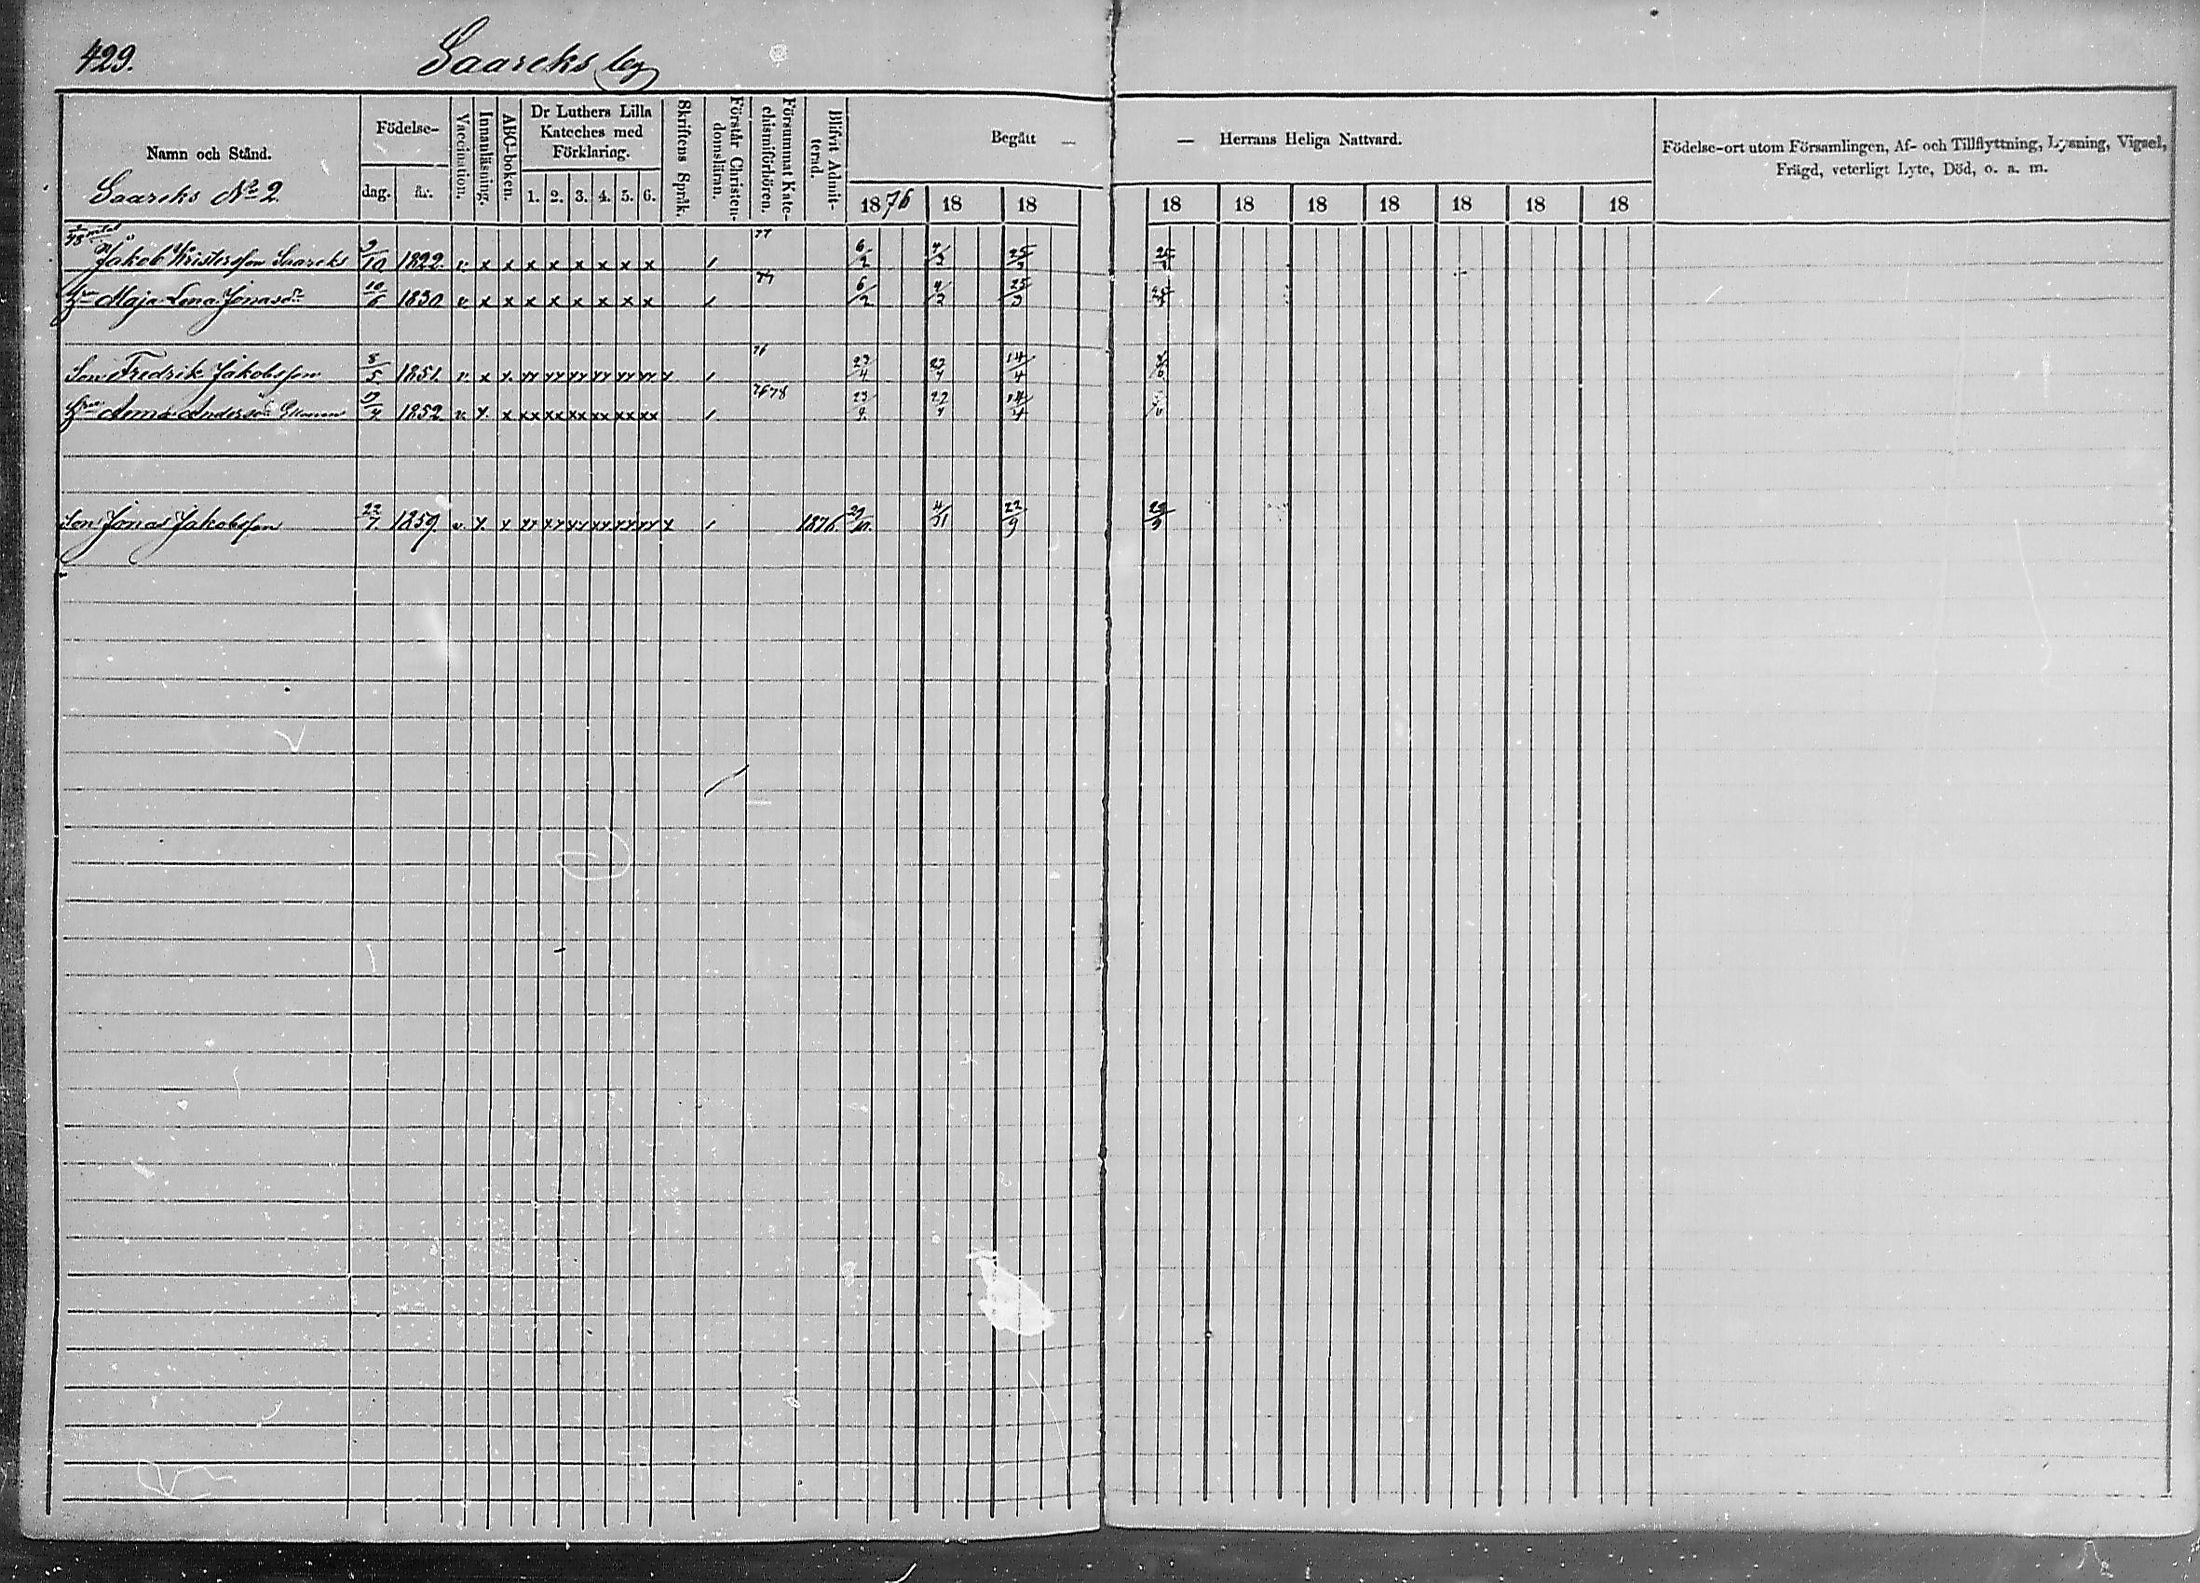 429.
Saareks by
Namn och Stånd.
Saareks No 2.
Födelse-
dag.
år.
Vaccination.
Innanläsning.
ABC-boken.
Dr Luthers Lilla
Kateches med
Förklaring.
1. 2. 3. 4. 5. 6.
Skriftens Språk.
Förstår Christen-
domsläran.
Försummat Kate-
chismiförhören.
Blifvit Admit-
terad.
Begått —
1876 18 18
— Herrans Heliga Nattvard.
18 18 18 18 18 18 18
Födelse-ort utom Församlingen, Af- och Tillflyttning, Lysning, Vigsel,
Frägd, veterligt Lyte, Död, o. a. m.
Jakob Kristersson Saareks 9/10 1822. v. x x x x x x x x 77 6/2 4/3 25/3 25/3
Hu Maja Lena Jonasdr 10/6 1830 v. x x x x x x x x 77 6/2 4/3 25/3
Son Fredrik Jakobsson 8/5 1851. v. x x xx xx xx xx xx xx x 76 23/4 14/4
Hu Anna Andersdr 1852 v. x x xx xx xx xx xx xx 76 78 14/4
Son Jonas Jakobsson 22/7 1859. v. x x xx xx xx xx xx xx x 1876. 4/31 22/9